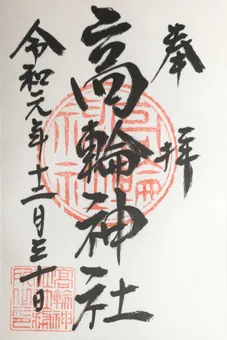 奉拝
高輪神社
令和元年十二月三十日